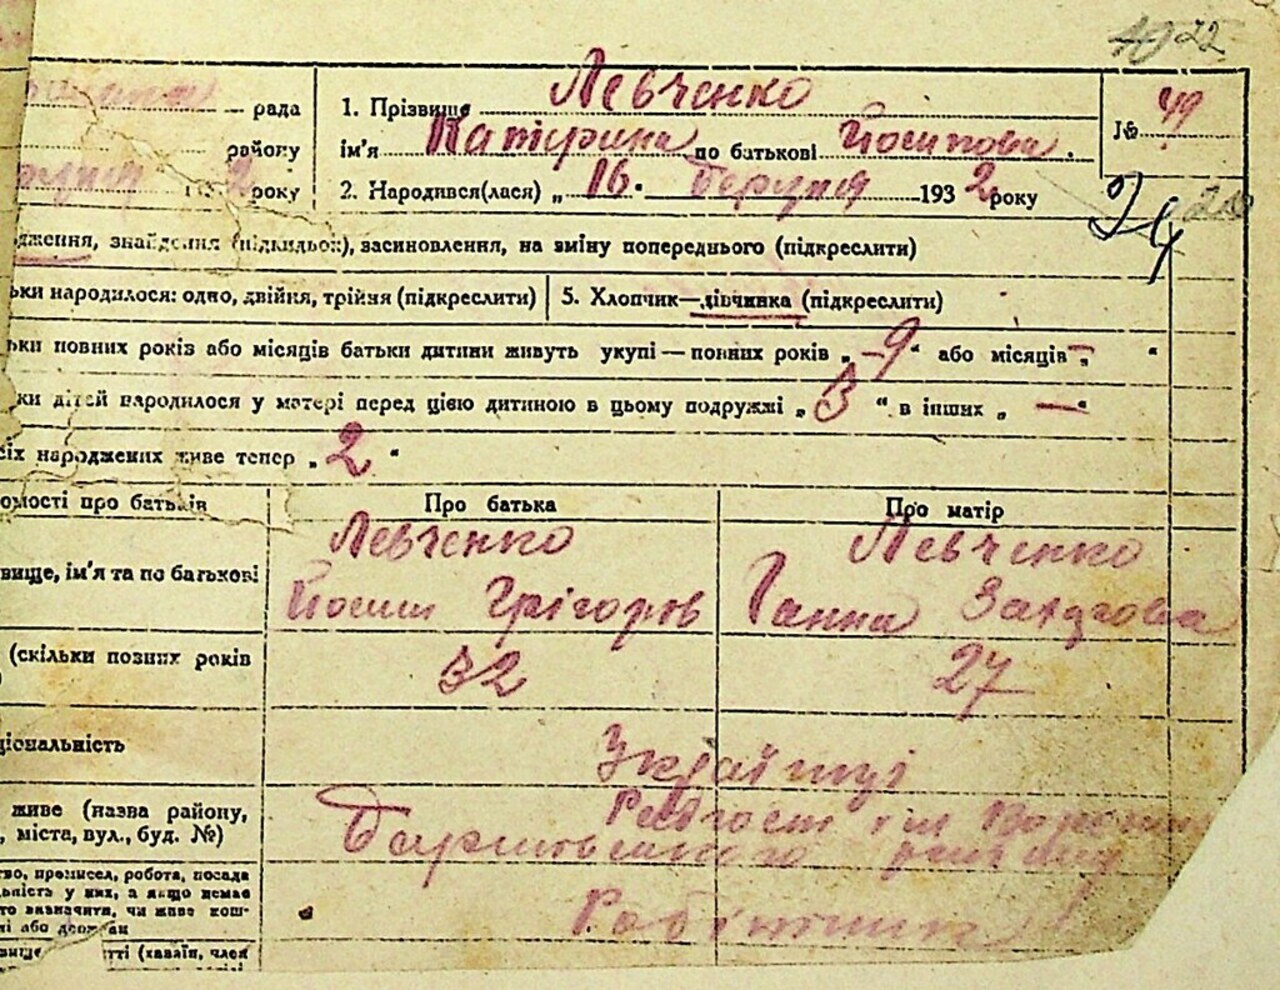 22
рада
1. Прізвище Левченко
№ 49
району
ім'я Катерина по батькові Йосипова.
року
2. Народився(лася) „ 16. березня 1932 року
дження, знайдення (підкидьок), засиновлення, на зміну попереднього (підкреслити)
ьки народилося: одно, двійня, трійня (підкреслити)
5. Хлопчик—дівчинка (підкреслити)
ьки повних років або місяців батьки дитини живуть укупі—повних років „ —9 “ або місяців „ — “
ки дітей народилося у матері перед цією дитиною в цьому подружжі „ 3 “ в інших „ — “
сіх народжених живе тепер „ 2 “
омості про батьків
Про батька
Про матір
вище, ім'я та по батькові
Левченко
Йосип Грігоров
Левченко
Ганна Захарова
(скільки повних років
32
27
ціональність
Українці
живе (назва району,
, міста, вул., буд. №)
Радгосп ім
тво, промисел, робота, посада
льність у них, а якщо немає
то зазначити, чи живе кош-
ні або держави
Робітник
вище
тті (хазяїн, член